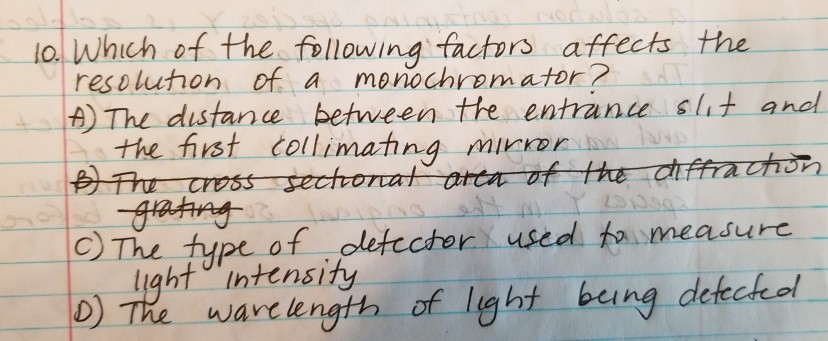 10. Which of the following factors affects the
resolution of a monochromator?
A) The distance between the entrance slit and
the first collimating mirror
B) The cross sectional area of the diffraction
grating
C) The type of detector used to measure
light intensity
D) The wavelength of light being detected